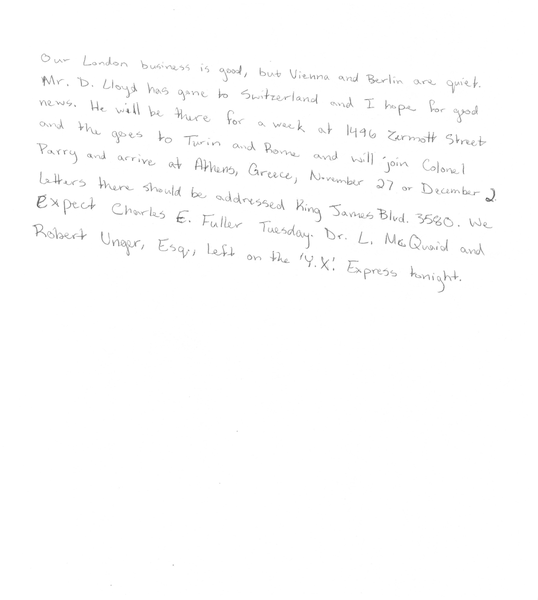 Our London business is good, but Vienna and Berlin are quiet.
Mr. D. Lloyd has gone to Switzerland and I hope for good
news. He will be there for a week at 1496 Zermott Street
and the goes to Turin and Rome and will join Colonel
Parry and arrive at Athens, Greece, November 27 or December 2.
Letters there should be addressed King James Blvd. 3580. We
Expect Charles E. Fuller Tuesday. Dr. L. McQuaid and
Robert Unger, Esq., Left on the 'Y.X'. Express tonight.